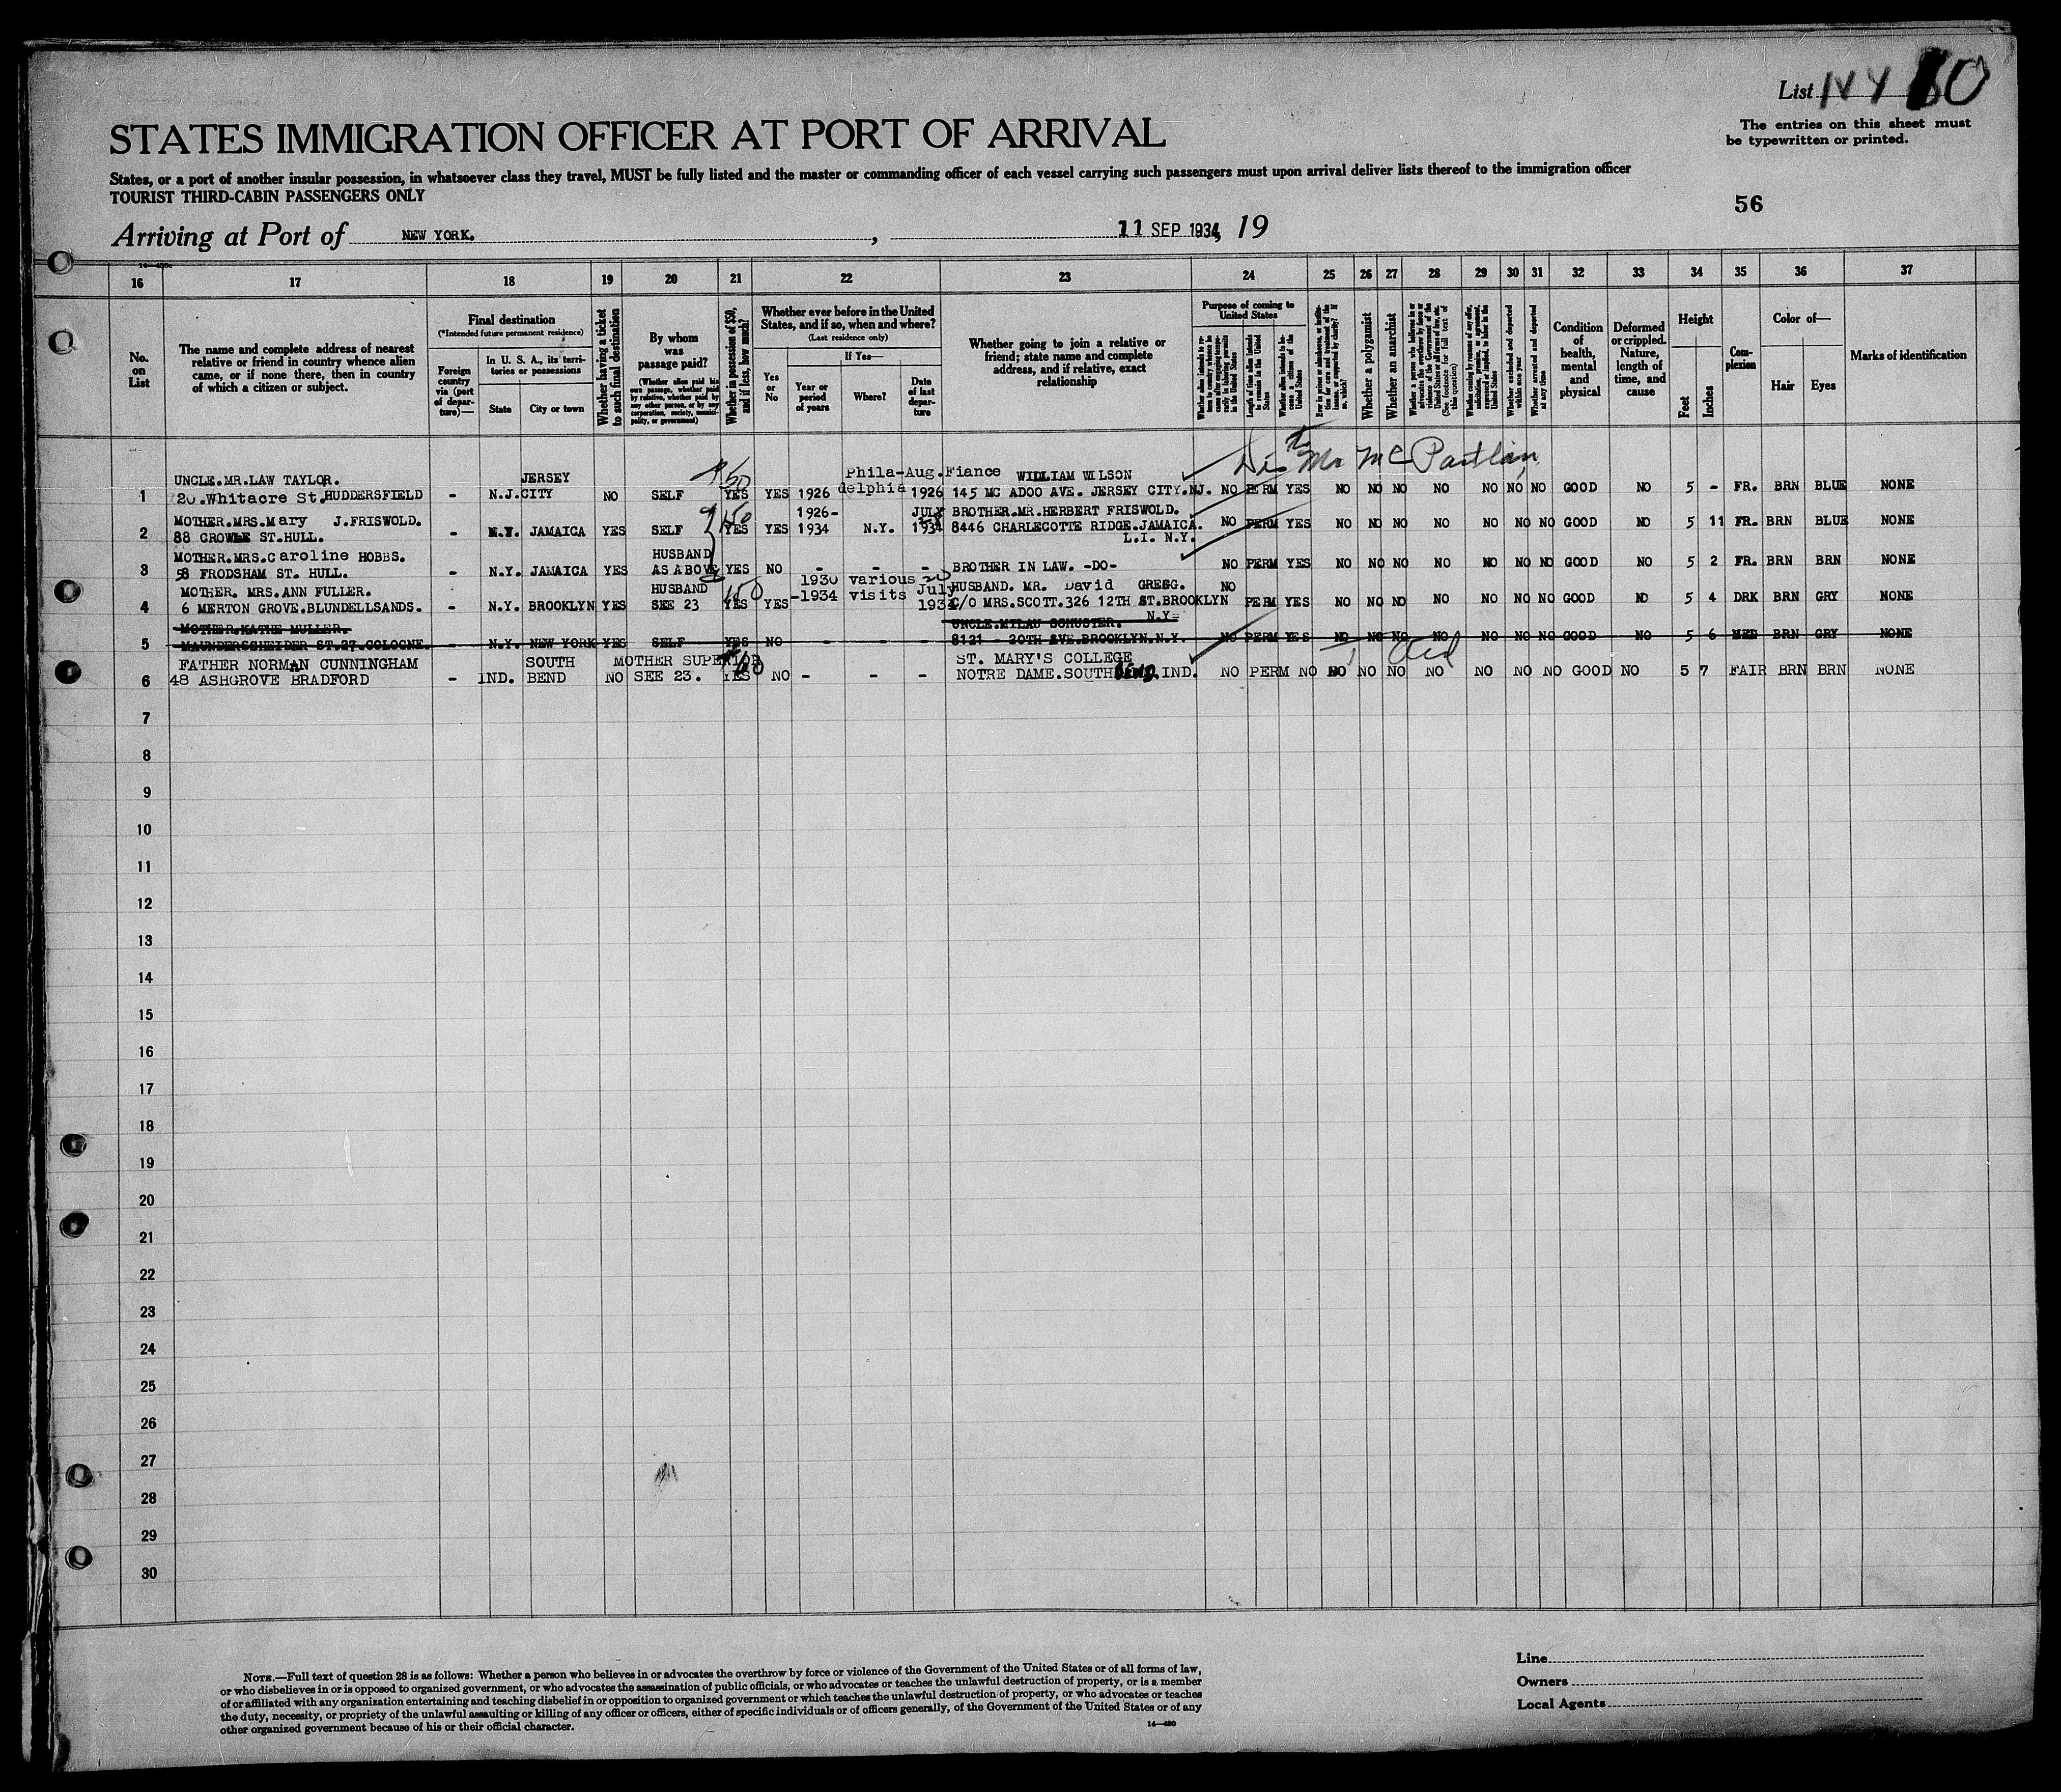 List
The entries on this sheet must
be typewritten or printed.
STATES IMMIGRATION OFFICER AT PORT OF ARRIVAL
States, or a port of another insular possession, in whatsoever class they travel, MUST be fully listed and the master or commanding officer of each vessel carrying such passengers must upon arrival deliver lists thereof to the immigration officer
TOURIST THIRD-CABIN PASSENGERS ONLY
56
Arriving at Port of NEW YORK. , 11 SEP 1934, 19
16 17 18 19 20 21 22 23 24 25 26 27 28 29 30 31 32 33 34 35 36 37
No. on List
The name and complete address of nearest relative or friend in country whence alien came, or if none there, then in country of which a citizen or subject.
Final destination
(*Intended future permanent residence)
Foreign country via (port of departure)—
In U. S. A., its territories or possessions
State
City or town
Whether having a ticket to such final destination
By whom was passage paid?
(Whether alien paid his own passage, whether paid by relative, whether paid by any other person, or by any corporation, society, municipality, or government)
Whether in possession of $50, and if less, how much?
Whether ever before in the United States, and if so, when and where?
(Last residence only)
Yes or No
If Yes—
Year or period of years
Where?
Date of last departure
Whether going to join a relative or friend; state name and complete address, and if relative, exact relationship
Purpose of coming to United States
Length of time alien intends to remain in the United States
Whether alien intends to become a citizen of the United States
Whether a polygamist
Whether an anarchist
(See footnote for full text of this question)
Whether excluded and deported within one year
Whether arrested and deported at any time
Condition of health, mental and physical
Deformed or crippled. Nature, length of time, and cause
Height
Feet
Inches
Complexion
Color of—
Hair
Eyes
Marks of identification
Mr McPartlan
UNCLE.MR.LAW TAYLOR. JERSEY Phila- Aug. Fiance WILLIAM WILSON
1 20.Whitacre St.HUDDERSFIELD - N.J. CITY NO SELF YES YES 1926 delphia 1926 145 MC ADOO AVE. JERSEY CITY.NJ. NO PERM YES NO NO NO NO NO NO NO GOOD NO 5 - FR. BRN BLUE NONE
MOTHER.MRS.Mary J.FRISWOLD. 150 1926- JULY BROTHER.MR.HERBERT FRISWOLD.
2 88 CROWLE ST.HULL. - N.Y. JAMAICA YES SELF YES YES 1934 N.Y. 1934 8446 CHARLECOTTE RIDGE.JAMAICA. NO PERM YES NO NO NO NO NO NO NO GOOD NO 5 11 FR. BRN BLUE NONE
L.I. N.Y.
MOTHER.MRS.Caroline HOBBS. HUSBAND
3 58 FRODSHAM ST. HULL. - N.Y. JAMAICA YES AS ABOVE YES NO - - - BROTHER IN LAW. -DO- NO PERM YES NO NO NO NO NO NO NO GOOD NO 5 2 FR. BRN BRN NONE
MOTHER. MRS.ANN FULLER. HUSBAND 150 1930 various July HUSBAND. MR. David GREGG. NO
4 6 MERTON GROVE.BLUNDELLSANDS. - N.Y. BROOKLYN YES SEE 23 YES YES -1934 visits 1934 C/O MRS.SCOTT.326 12TH ST.BROOKLYN PERM YES NO NO NO NO NO NO NO GOOD NO 5 4 DRK BRN GRY NONE
N.Y.
MOTHER.KATHE MULLER. UNCLE.MILAU SCHUSTER.
5 MAUNDERSCHEIDER ST.27.COLOGNE. - N.Y. NEW YORK YES SELF YES NO - - - 8121 - 20TH AVE.BROOKLYN.N.Y. NO PERM YES NO NO NO NO NO NO NO GOOD NO 5 6 MED BRN GRY NONE
FATHER NORMAN CUNNINGHAM SOUTH MOTHER SUPERIOR ST. MARY'S COLLEGE
6 48 ASHGROVE BRADFORD - IND. BEND NO SEE 23. YES NO - - - NOTRE DAME.SOUTH BEND, IND. NO PERM NO NO NO NO NO NO NO NO GOOD NO 5 7 FAIR BRN BRN NONE
7
8
9
10
11
12
13
14
15
16
17
18
19
20
21
22
23
24
25
26
27
28
29
30
NOTE.—Full text of question 28 is as follows: Whether a person who believes in or advocates the overthrow by force or violence of the Government of the United States or of all forms of law,
or who disbelieves in or is opposed to organized government, or who advocates the assassination of public officials, or who advocates or teaches the unlawful destruction of property, or is a member
of or affiliated with any organization entertaining and teaching disbelief in or opposition to organized government or which teaches the unlawful destruction of property, or who advocates or teaches
the duty, necessity, or propriety of the unlawful assaulting or killing of any officer or officers, either of specific individuals or of officers generally, of the Government of the United States or of any
other organized government because of his or their official character.
14—480
Line
Owners
Local Agents